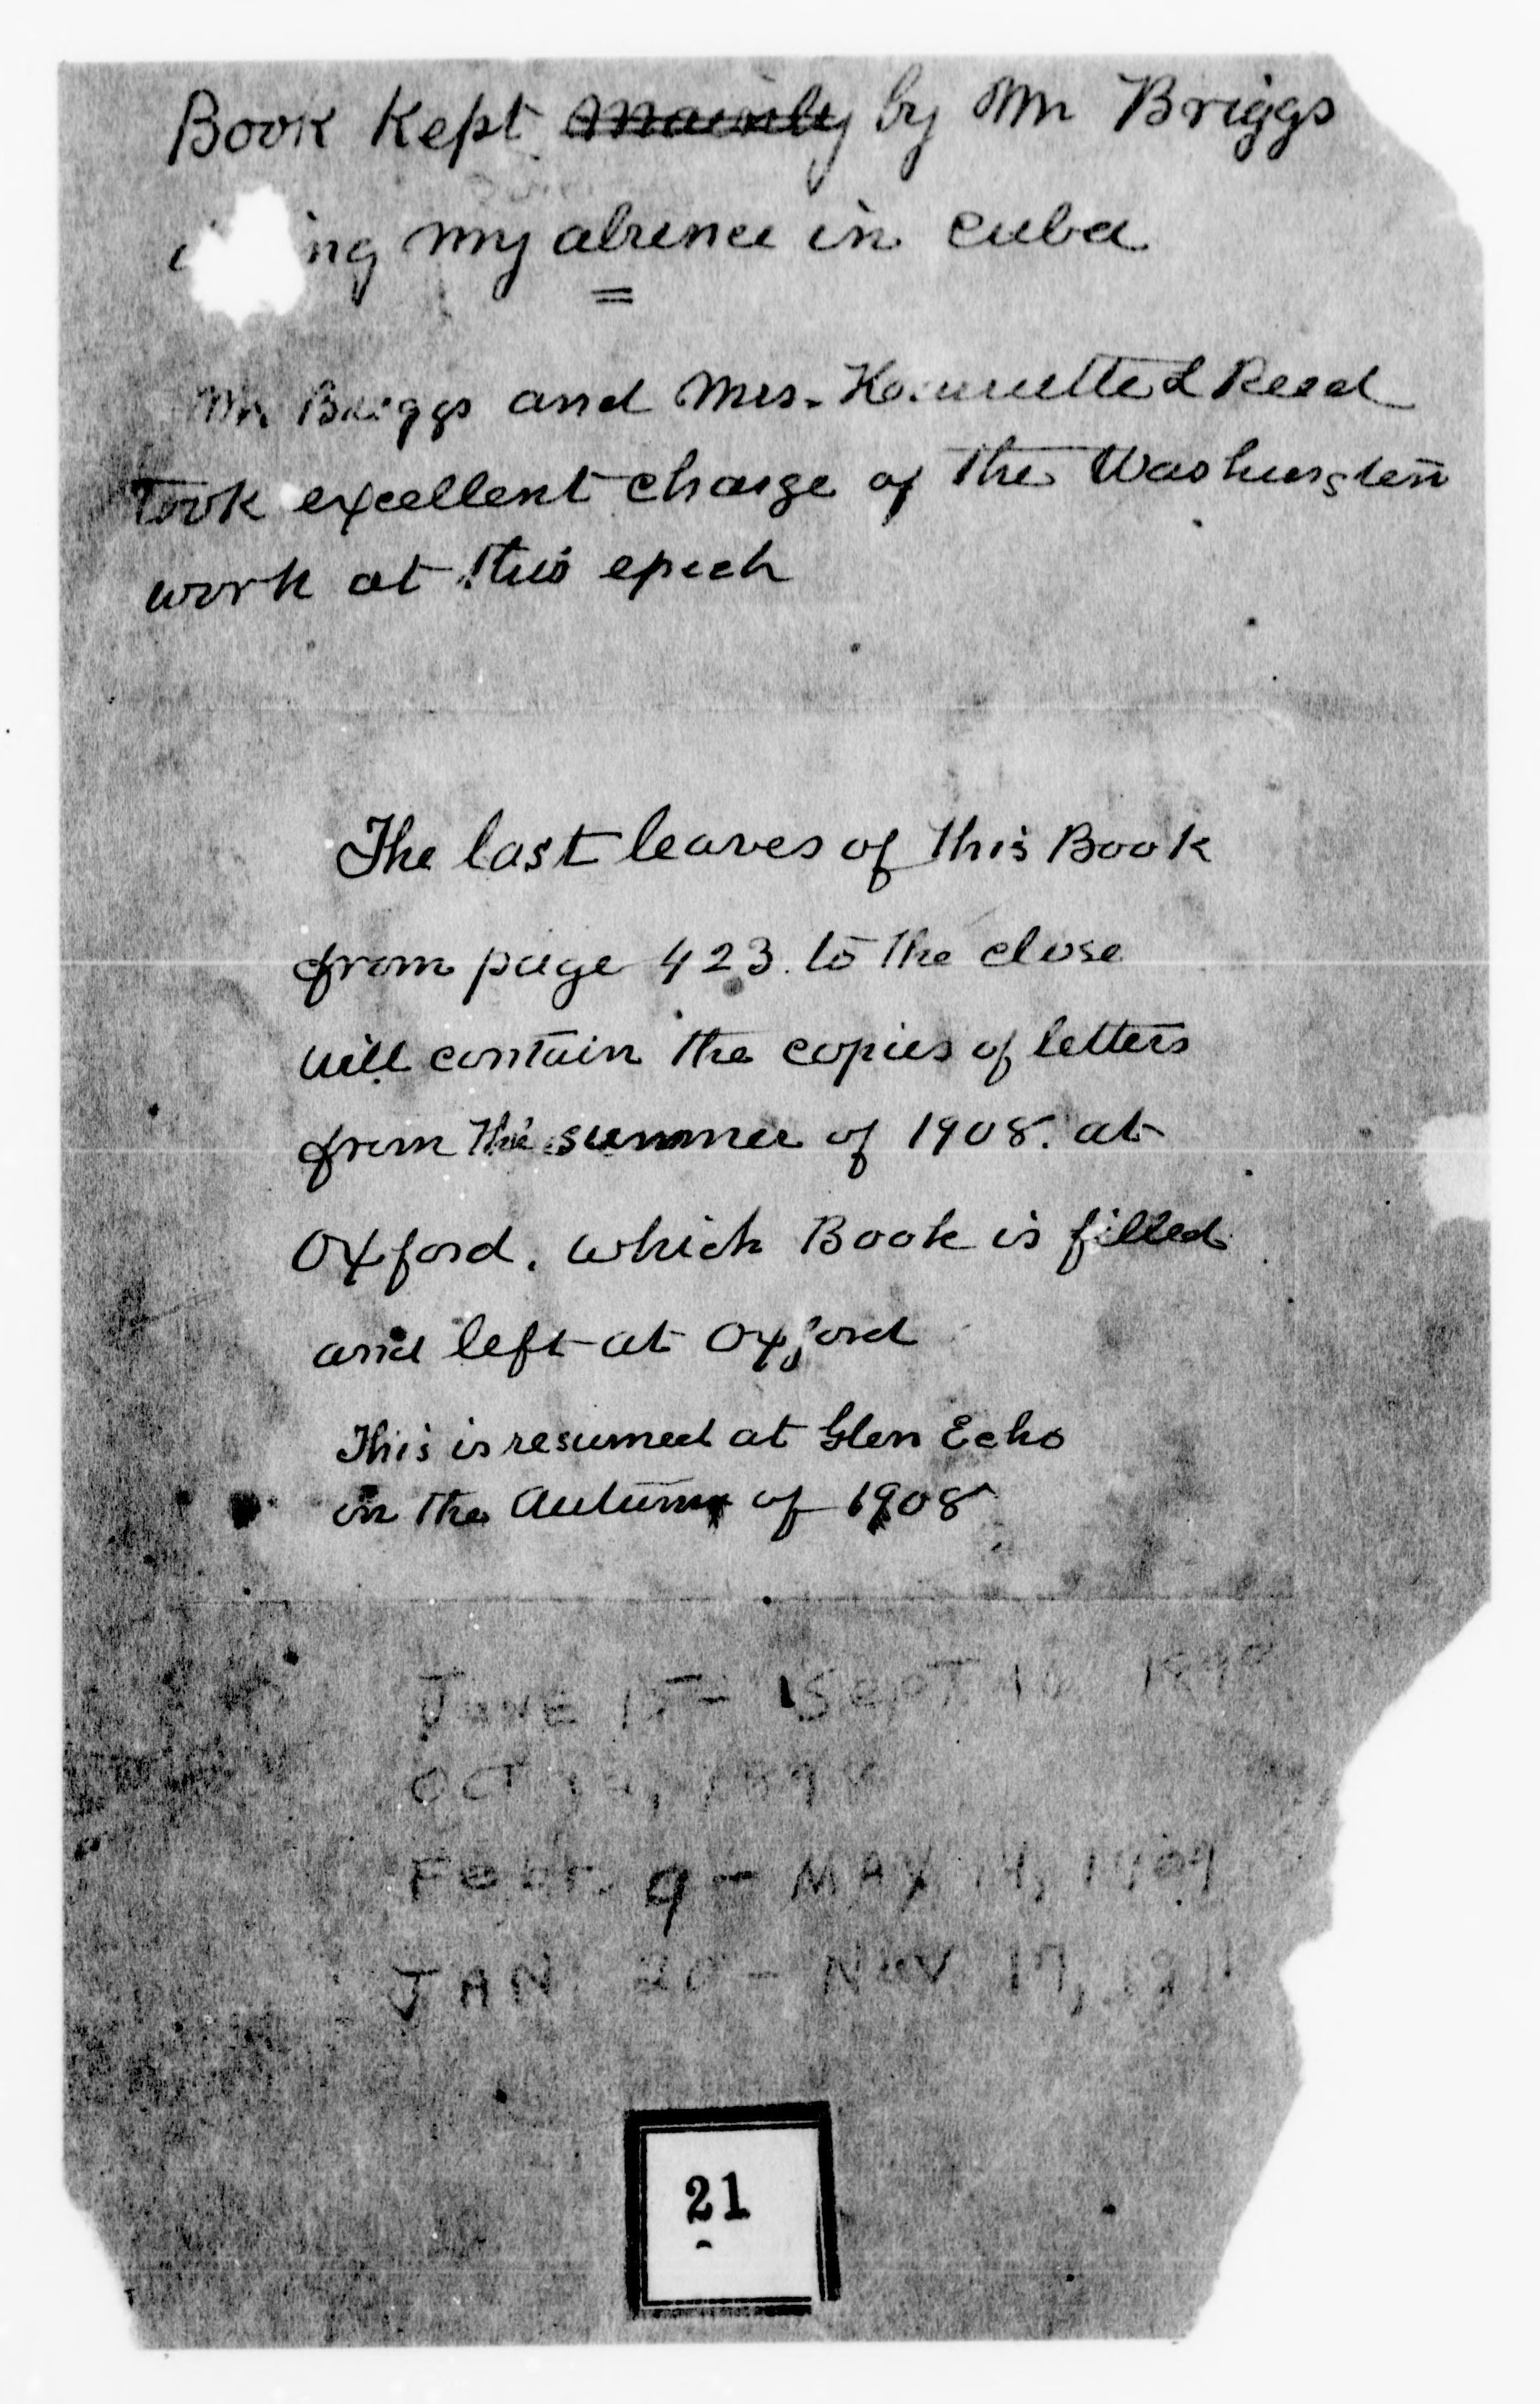 Book Kept mainly by Mr Briggs
ing my absence in Cuba
=
Mr Briggs and Mrs. Henrietta L Reed
took excellent charge of the Washington
work at this epoch
The last leaves of this Book
from page 423. to the close
will contain the copies of letters
from the summer of 1908. at
Oxford. which Book is filled
and left at Oxford
This is resumed at Glen Echo
in the Autumn of 1908
JUNE 15 - SEPT 16
OCT
FEBR. 9 - MAY 14, 1909
JAN 20 - NOV 17,
21